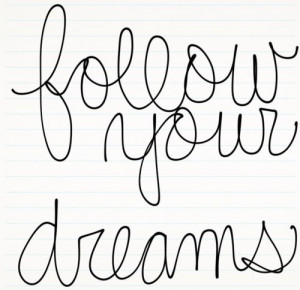 follow
your
dreams